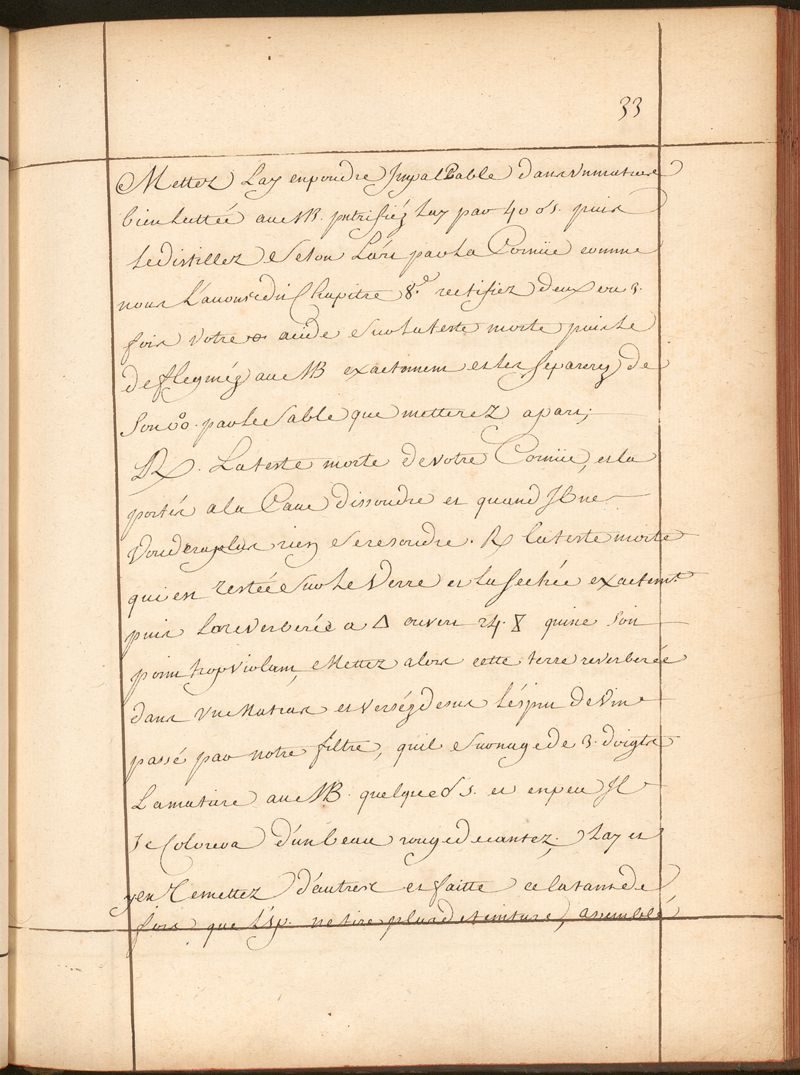 33
Mettez Lay en poudre Jmpalpable dans un matras
bien luttée au MB. putrifiéz Lay par 40 putrifiez
Le distillez Selon L'art par La Cornüe comme
nous L'auons dit Chapitre 8.e rectifiez deux ou 3.
fois votre acide Sur la teste morte puis Le
deflegméz au MB exactement et les separerez de
Son par Le Sable que metterez apart;
R. La teste morte de votre Cornüe, et la
portér a la Caue dissoudre et quand Jl ne
Voudera plus rien Se resoudre. R la teste morte
qui est restée Sur Le Verre et la sechée exactemt.
puis La reverberée a △ ouvert 24. quine Soit
point trop violant, Mettez alors cette terre reverberée
dans vn Matras et versez desus L'esprit de Vin
passé par notre filtre, quil Surnage de 3. doigts
La matiere au MB. quelque et en peu Jl
Se Colorera d'un beau rouge decantez. Lay et
y en Remettez d'autres et faitte cela tant de
fois que L'sp. ne tire plus de teinture, assemblé